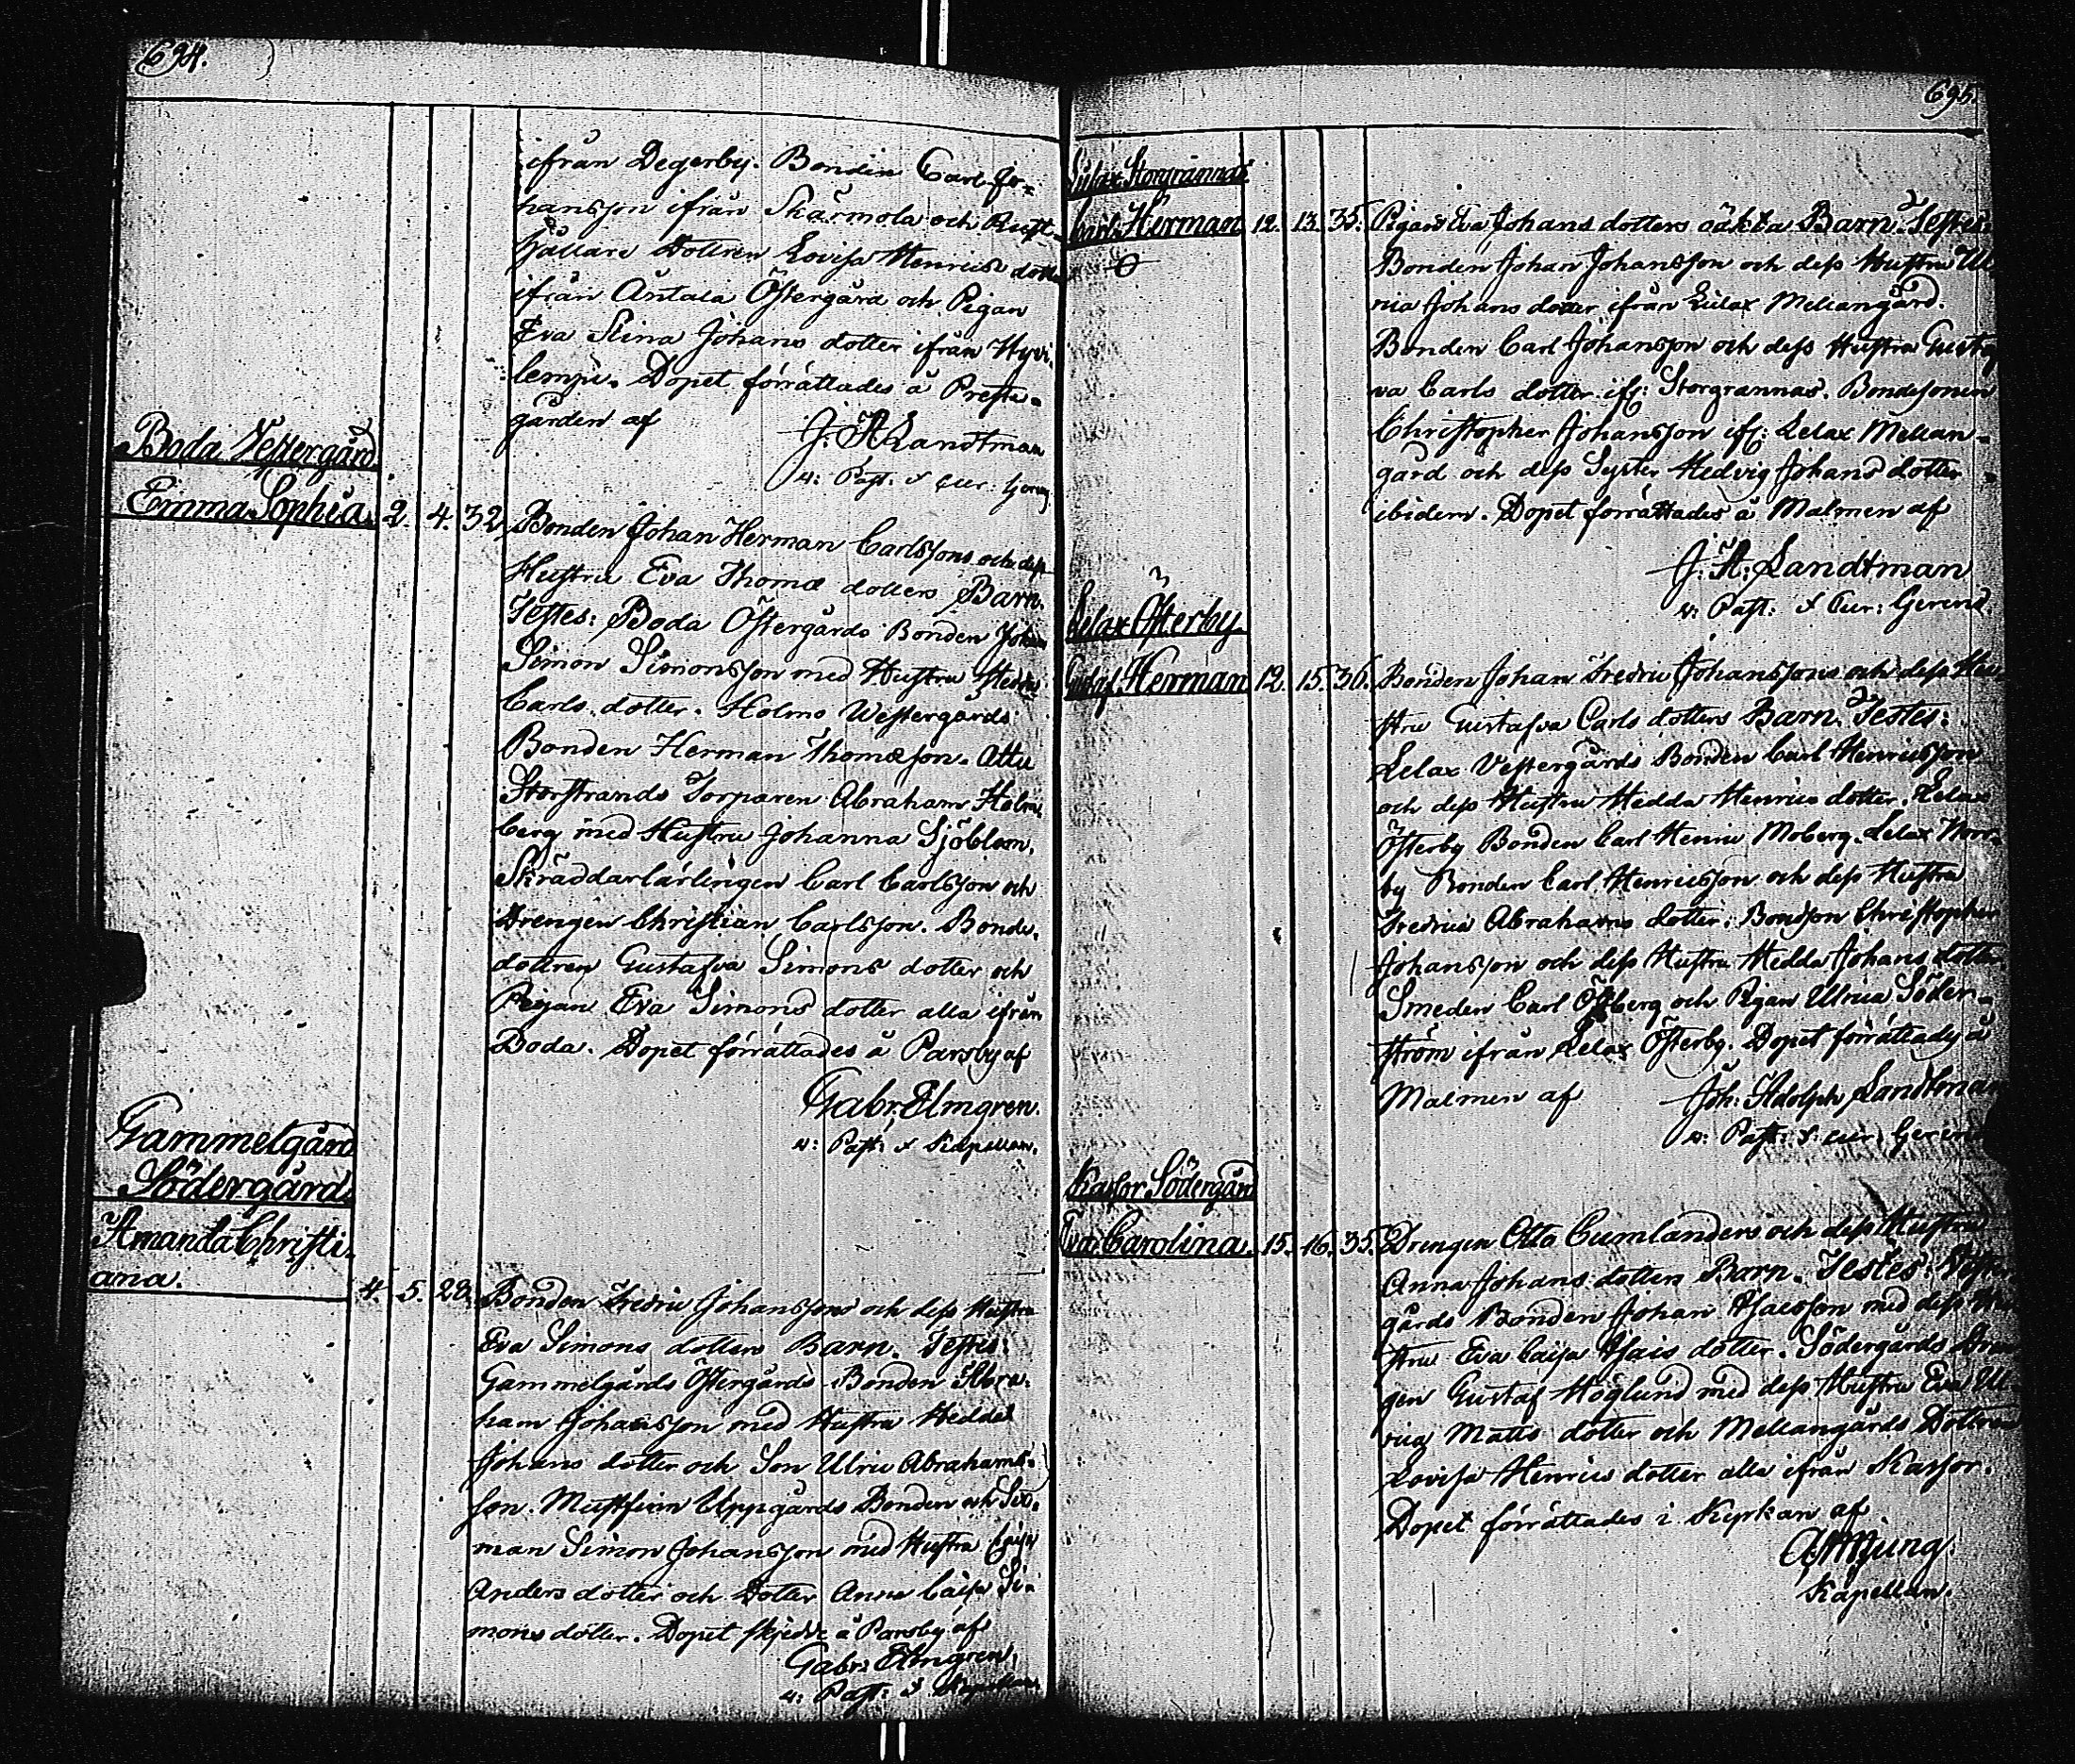 694.
ifrån Degerby. Bonden Carl Jo-
hansson ifrån Skärmola och Rust-
hållare dottren Lovisa Henrics dotter
ifrån Antala Östergård och Pigan
Eva Stina Johans dotter ifrån Hyvi
lempi. Dopet förrättades å Preste-
gården af J. A. Landtman
v: Past: & cur: gerens
Boda Vestergård
Emma Sophia. 2. 4. 32. Bonden Johan Herman Carlssons och dess
Hustru Eva Thomæ dotters Barn.
Testes: Boda Östergårds Bonden Johan
Simon Simonsson med Hustru Hedda
Carls dotter. Holms Westergårds
Bonden Herman Thomæson. Attu
Storstrands Torparen Abraham Holm-
berg med Hustru Johanna Sjöblom.
Skräddarlärlingen Carl Carlsson och
Drengen Christian Carlsson. Bonde-
dottren Gustafva Simons dotter och
Pigan Eva Simons dotter alla ifrån
Boda. Dopet förrättades å Parsby af
Gabr: Elmgren.
v: Past: & Kapellan.
Gammelgård
Södergård
Amanda Christi-
ana. 4. 5. 28. Bonden Fredric Johanssons och dess Hustru
Eva Simons dotters Barn. Testes:
Gammelgårds Östergårds Bonden Abra-
ham Johansson med Hustru Hedda
Johans dotter och Son Ulric Abrahams-
son. Mustfinn Uppgårds Bonden och Sex-
man Simon Johansson med Hustru Caisa
Anders dotter och Dotter Anna Caisa Si-
mons dotter. Dopet skjedde å Parsby af
Gabr: Elmgren.
v: Past: & Kapellan
695.
Lelax Storgrannas
Carl Herman 12. 13. 35. Pigans Eva Johans dotters oäkta Barn. Testes:
Bonden Johan Johansson och dess Hustru Ul
rica Johans dotter ifrån Lelax Mellangård.
Bonden Carl Johansson och dess Hustru Gustaf
va Carls dotter ifr: Storgrannas. Bondesonen
Christopher Johansson ifr: Lelax Mellan-
gård och dess Syster Hedvig Johans dotter
ibidem. Dopet förrättades å Malmen af
J. A. Landtman
v: Past: & Cur: Gerens.
Lelax Österby.
Gustaf Herman 12. 15. 36. Bonden Johan Fredric Johanssons och dess Hu-
stru Gustafva Carls dotters Barn. Testes:
Lelax Vestergårds Bonden Carl Henricsson
och dess Hustru Hedda Henrics dotter. Lelax
Österby Bonden Carl Henric Moberg. Lelax Norr-
by Bonden Carl Henricsson och dess Hustru
Fredrica Abrahams dotter. Bondson Christopher
Johansson och dess Hustru Hedda Johans dotter.
Smeden Carl Östberg och Pigan Ulrica Söder-
ström ifrån Lelax Österby. Dopet förrättades å
Malmen af Joh: Adolph Landtman
v: Past: & cur: Gerens
Kasor Södergård
Eva Carolina. 15. 16. 35. Drengen Otto Cumlanders och dess Hustru
Anna Johans dotters Barn. Testes: Vester
gårds Bonden Johan Isacsson med dess Hu
stru Eva Caisa Isacs dotter. Södergårds Dren
gen Gustaf Höglund med dess Hustru Eva Ul
rica Matts dotter och Mellangårds Dottren
Lovisa Henrics dotter alla ifrån Kasor.
Dopet förrättades i Kyrkan af
Kapellan.